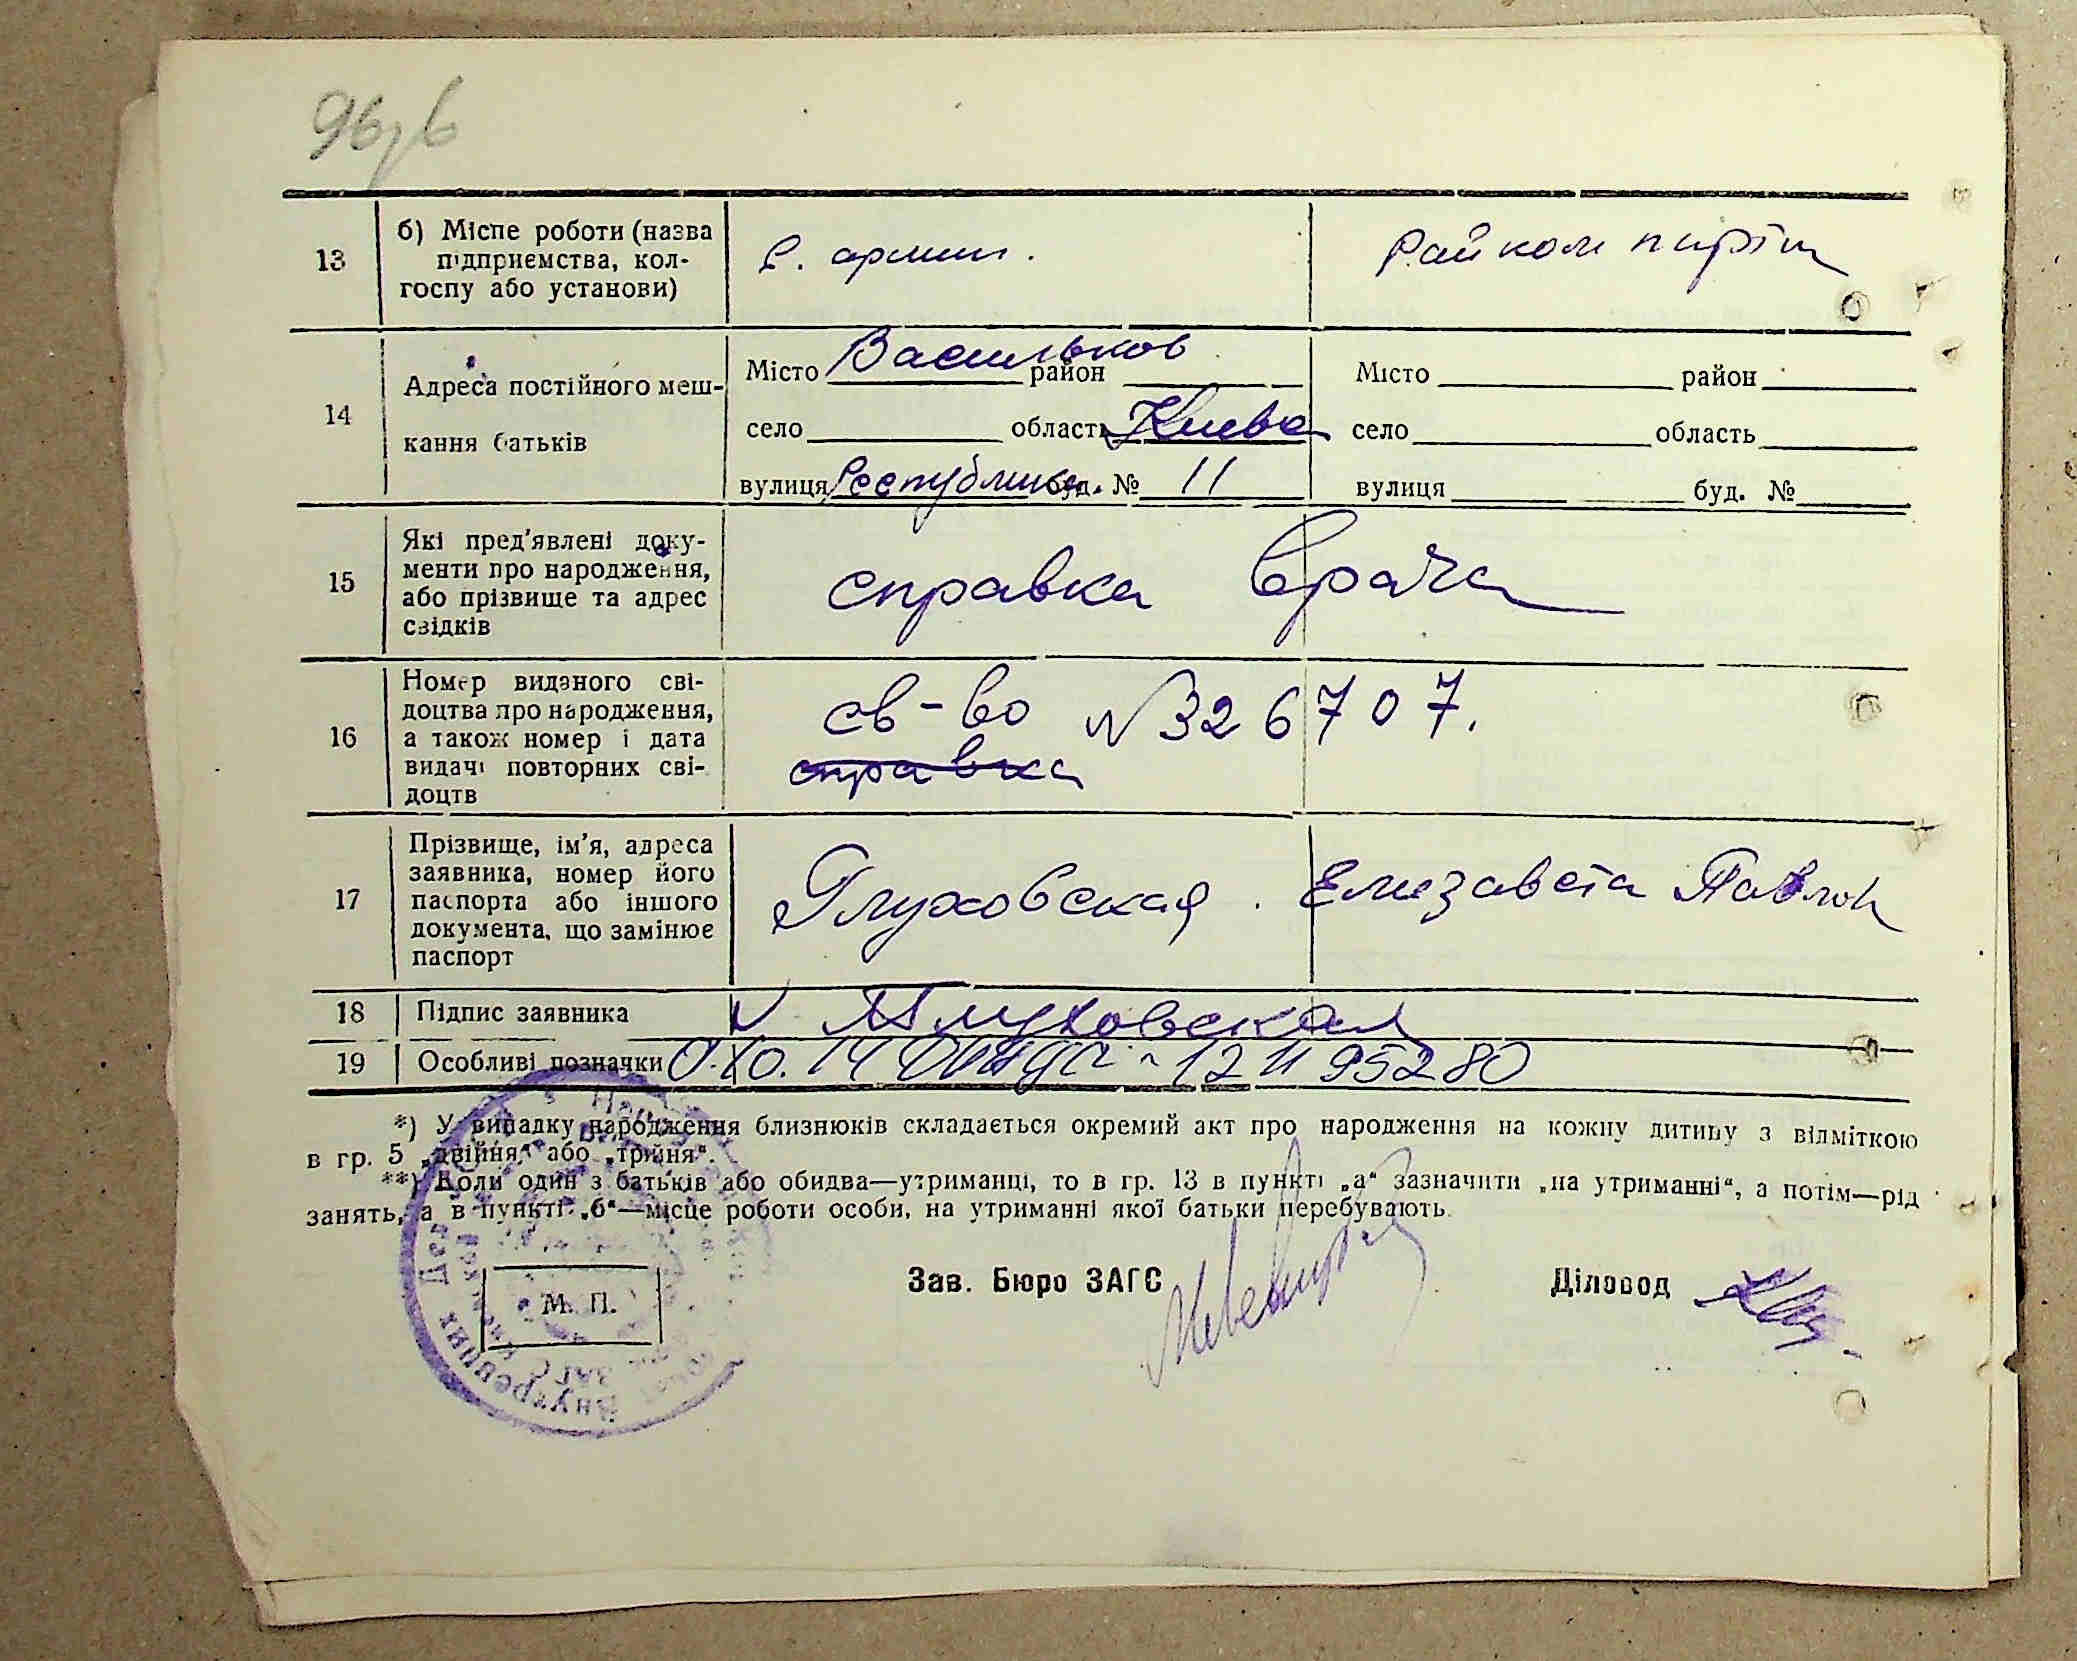 96
13
б) Місце роботи (назва
підприємства, кол-
госпу або установи)
Р. армии.
Райком партии
14
Адреса постійного меш-
кання батьків
Місто Васильков район
село область Киевс
вулиця Республики буд. № 11
Місто район
село область
вулиця буд. №
15
Які пред'явлені доку-
менти про народження,
або прізвище та адрес
свідків
справка врача
16
Номер виданого сві-
доцтва про народження,
а також номер і дата
видачі повторних сві-
доцтв
св-во № 326707.
справка
17
Прізвище, ім'я, адреса
заявника, номер його
паспорта або іншого
документа, що замінює
паспорт
Глуховская. Елизавета Павлов
18
Підпис заявника
V Глуховская
19
Особливі позначки
95280
*) У випадку народження близнюків складається окремий акт про народження на кожну дитину з відміткою
в гр. 5 „двійня“ або „трійня“.
**) Коли один з батьків або обидва—утриманці, то в гр. 13 в пункті „а“ зазначити „на утриманні“, а потім—рід
занять, а в пункті „б“—місце роботи особи, на утриманні якої батьки перебувають.
Зав. Бюро ЗАГС
Діловод
М. П.
Внутрешних Дел
ЗАГС